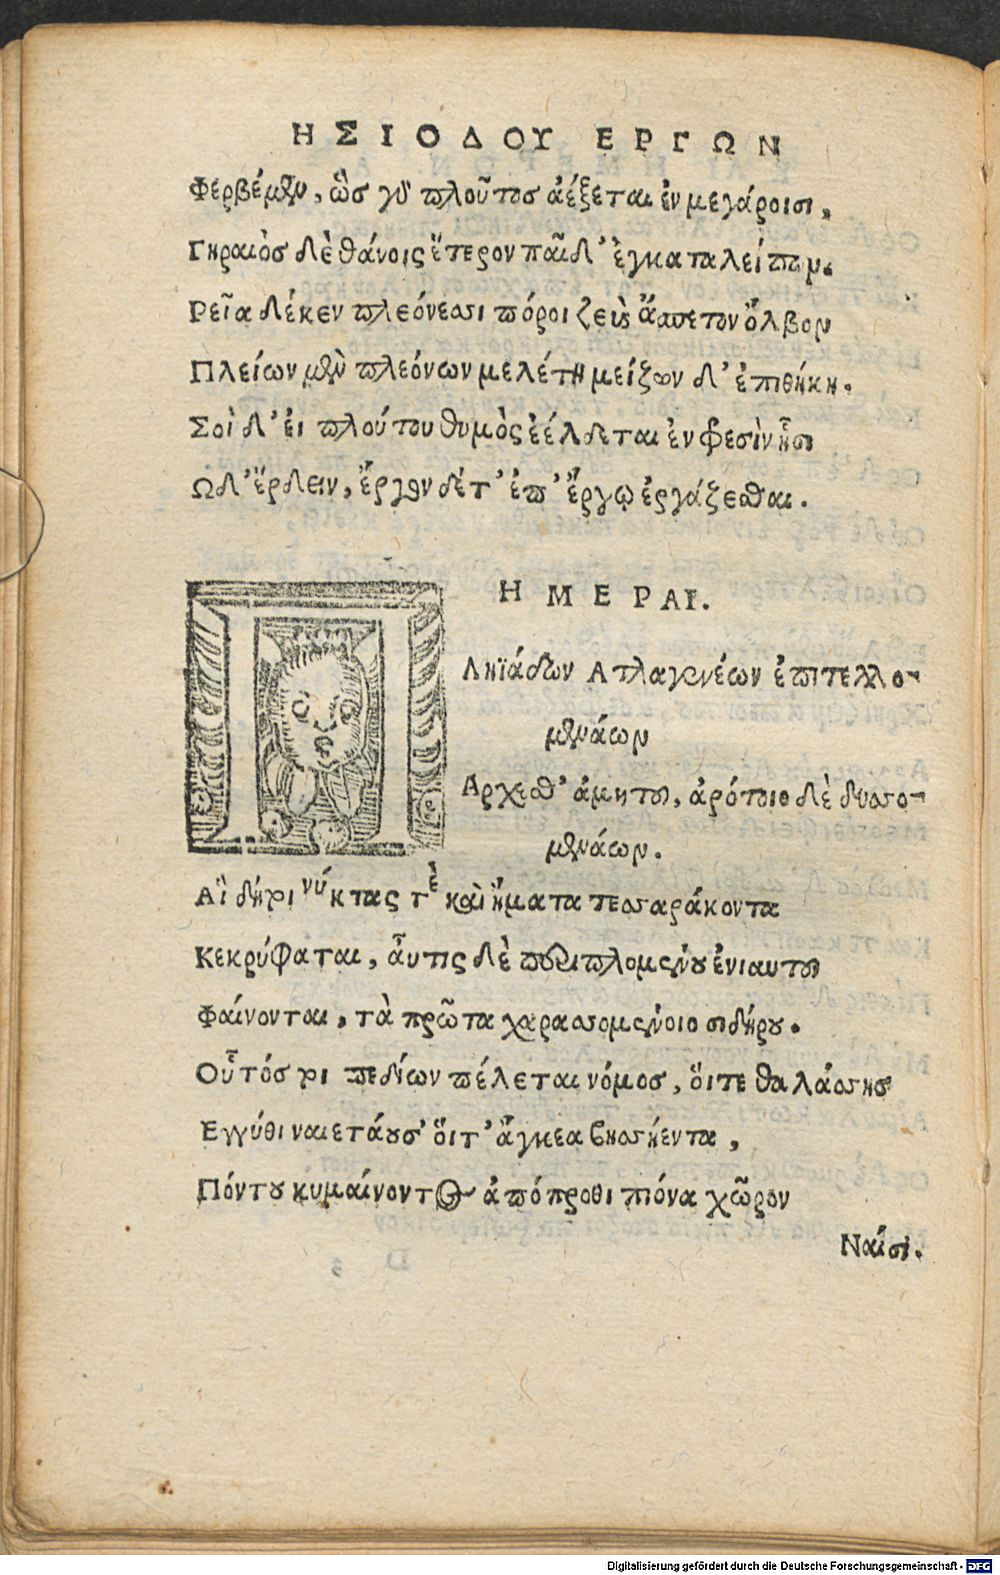 ΗΣΙΟΔΟΥ ΕΡΓΩΝ
Φερβέμεν, ὣς γὸ πλοῦτος ἀέξεται ἐν μεγάροισι,
Γηραιὸς δὲ θάνοις ἕτερον παῖδ' ἐγκαταλείπων.
Ρεῖα δέ κεν πλεόνεσσι πόροι ζεὺς ἄσπετον ὄλβον
Πλείων μὲν πλεόνων μελέτη μείζων δ' ἐπιθήκη.
Σοὶ δ' εἰ πλούτου θυμὸς ἐέλδεται ἐν φρεσὶν ᾗσι
Ωδ' ἔρδειν, ἔργον δέ τ' ἐπ' ἔργῳ ἐργάζεσθαι.
ΗΜΕΡΑΙ.
ΠΛηϊάδων Ατλαγενέων ἐπιτελλο-
μενάων
Αρχεσθ' ἀμητοῦ, ἀρότοιο δὲ δυσο-
μενάων.
Αἳ δή τοι νύκτας τὲ καὶ ἤματα τεσσαράκοντα
Κεκρύφαται, αὖτις δὲ περιπλομένου ἐνιαυτοῦ
Φαίνονται, τὰ πρῶτα χαρασσομένοιο σιδήρου.
Οὗτός τοι πεδίων πέλεται νόμος, οἵ τε θαλάσσης
Εγγύθι ναιετάουσ' οἵ τ' ἄγκεα βησσήεντα,
Πόντου κυμαίνοντος ἀπόπροθι πίονα χῶρον
Ναίσι.
Digitalisierung gefördert durch die Deutsche Forschungsgemeinschaft - DFG